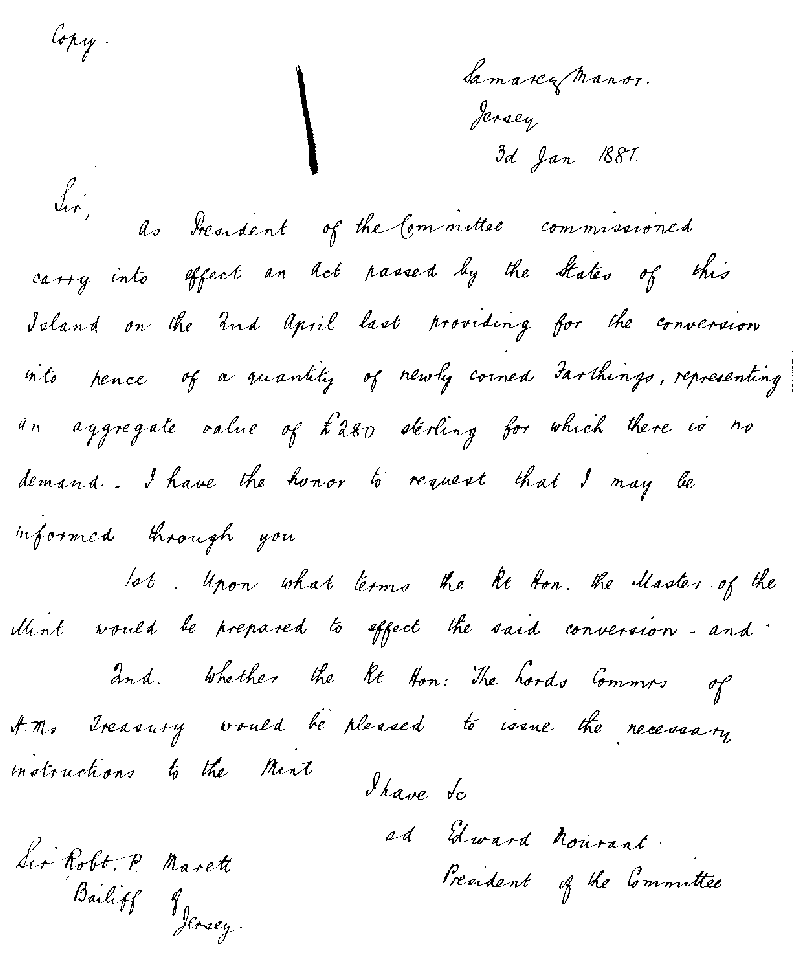 Copy.
Samarez Manor.
Jersey
3d Jan 1881.
Sir,
As President of the Committee commissioned
carry into effect an Act passed by the States of this
Island on the 2nd April last providing for the conversion
into pence of a quantity of newly coined Farthings, representing
an aggregate value of £280 sterling for which there is no
demand. - I have the honor to request that I may be
informed through you
1st. Upon what terms the Rt Hon. the Master of the
Mint would be prepared to effect the said conversion - and
2nd. Whether the Rt Hon: The Lords Commrs of
H.Ms Treasury would be pleased to issue the necessary
instructions to the Mint
I have &c
sd Edward Mourant.
President of the Committee
Sir Robt. P. Marett
Bailiff of
Jersey.